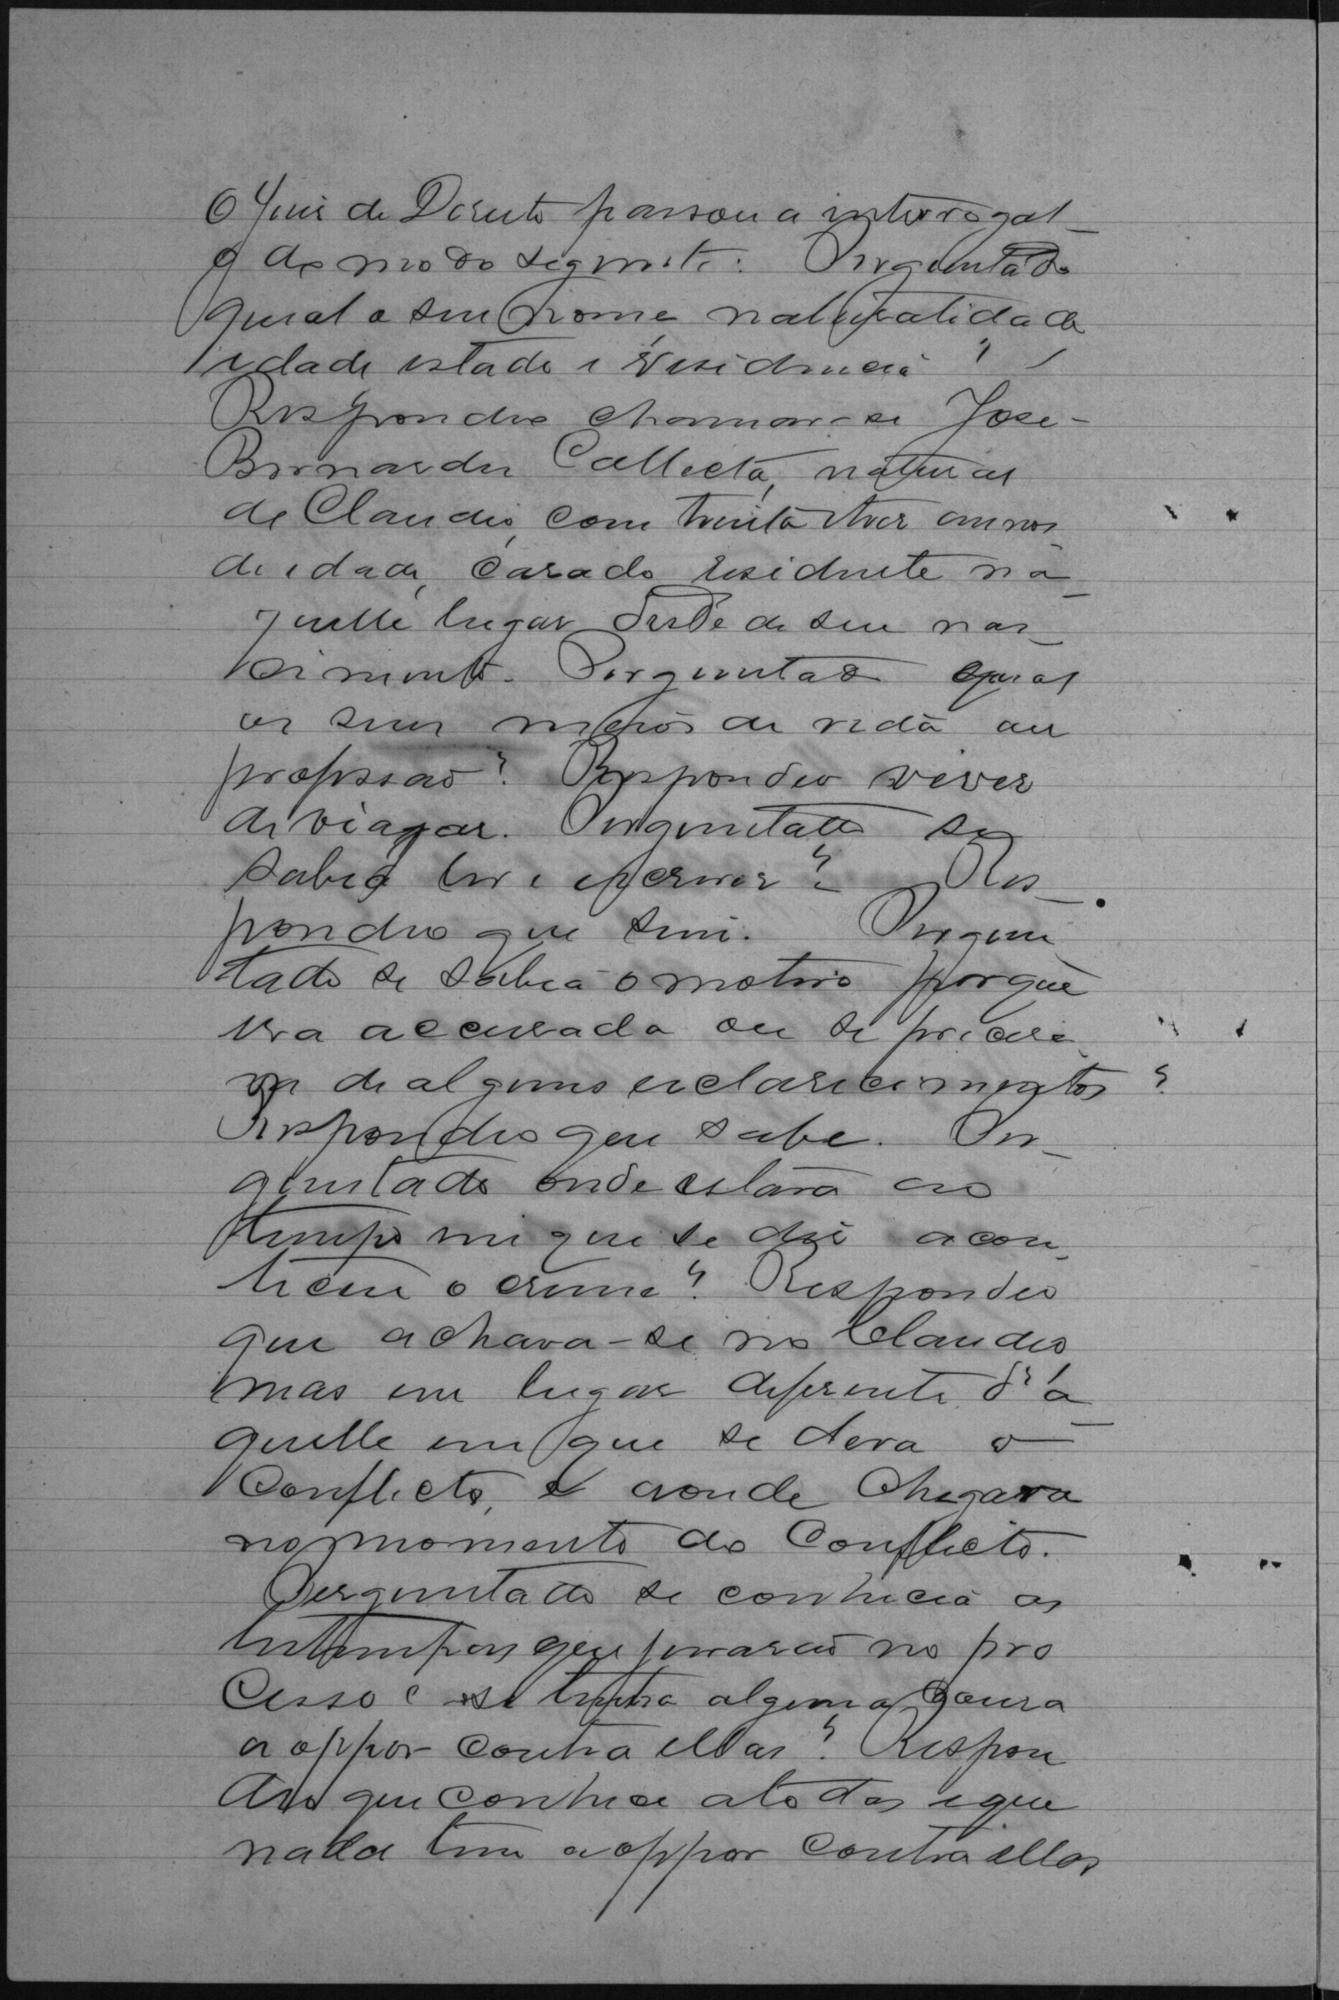 O Juiz de Direito passou a interrogal-
o do modo seguinte: Perguntado
qual o seu nome naturalidade
idade estado e residencia?
Respondeo chamar-se José
Bernardes Collecta, natural
de Claudio, com trinta e tres annos
de idade, casado residente na-
quelle lugar desde de seu nas-
cimento. Perguntado quaes
os seus meios de vida ou
profissão? Respondeo viver
de viajar. Perguntado se
sabia ler e escrever? Res-
pondeo que sim. Pergun
tado se sabia o motivo porque
era accusado ou se precisa
va de alguns esclarecimentos?
Respondeo que sabe. Per-
guntado onde estava ao
tempo em que se diz acon-
teceu o crime? Respondeo
que achava-se no Claudio
mas em lugar diferente d'a-
quelle em que se dera o
Conflicto, e aonde chegara
no momento do Conflicto.
Perguntado se conhecia as
testemunhas que juraram no pro
cesso e se tinha alguma cousa
a oppor contra ellas? Respon
deo que conhece a todas e que
nada tem a oppor contra ellas